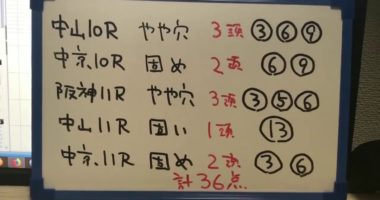 中山10R やや穴 3頭 ③⑥⑨
中京.10R 固め 2頭 ⑥⑨
阪神11R やや穴 3頭 ③⑤⑥
中山11R 固い 1頭 ⑬
中京.11R 固め 2頭 ③⑥
計36点